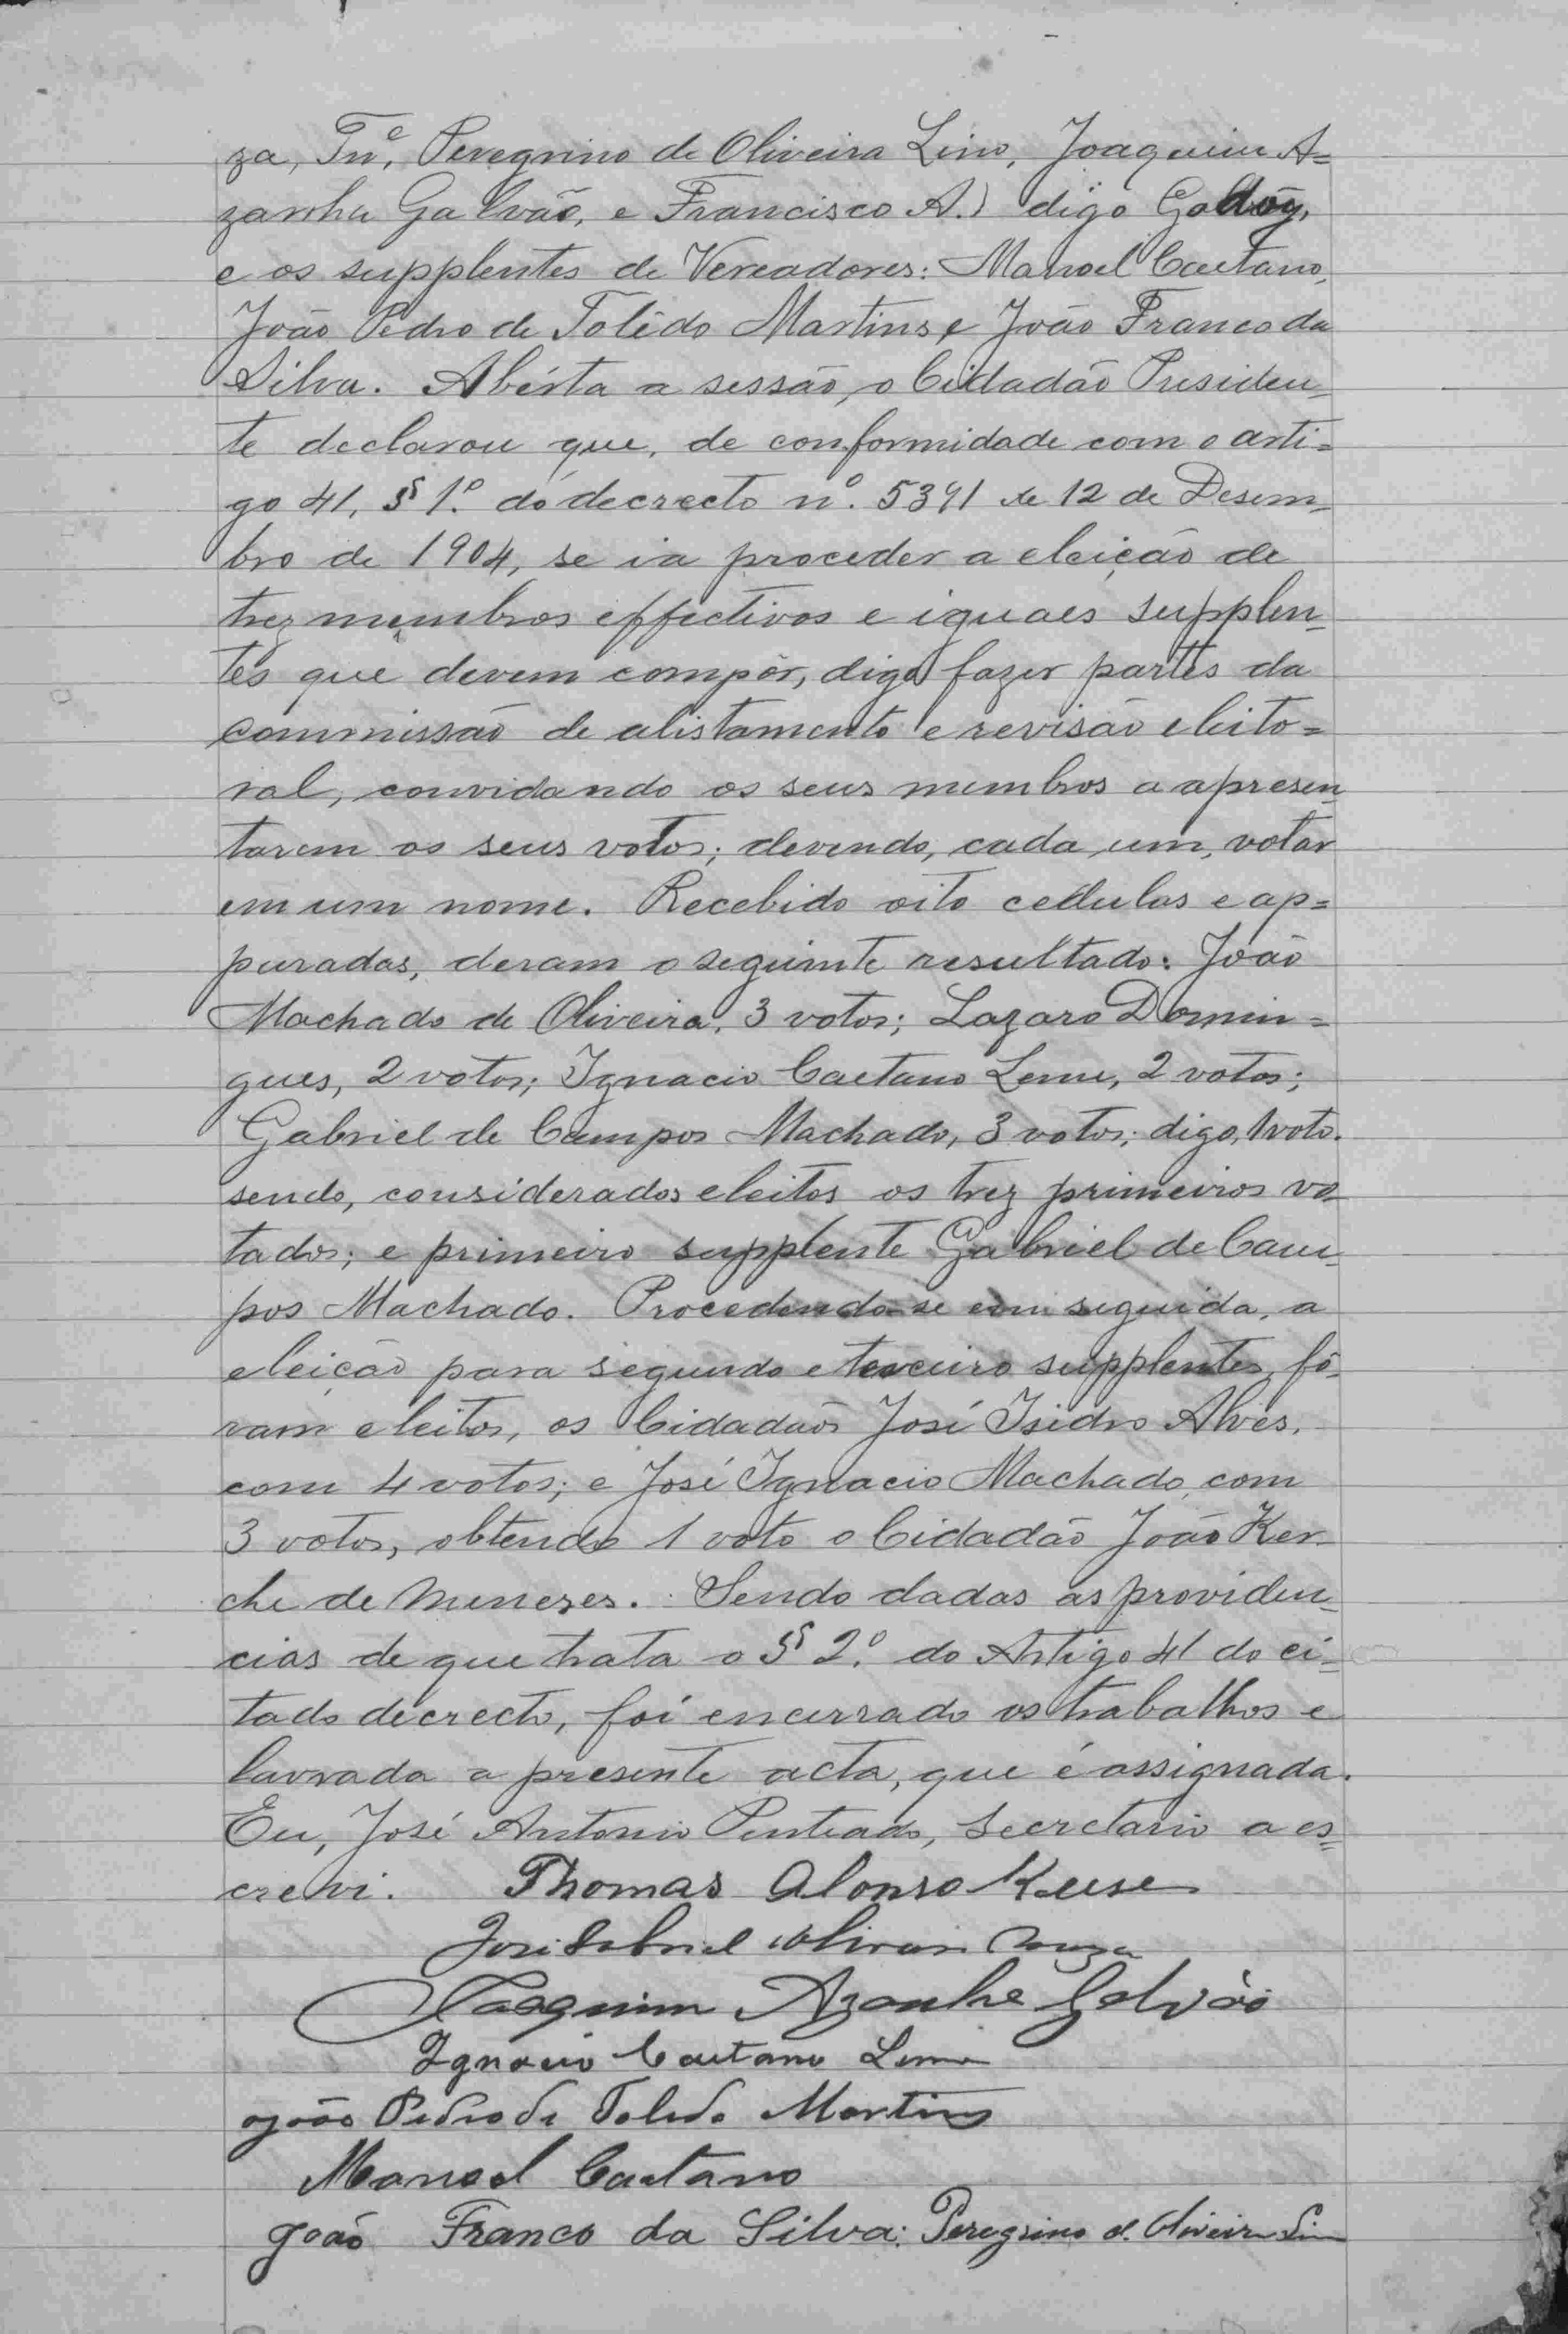 za, Tn.e, Peregrino de Oliveira Lino, Joaquim A=
zanha Galvão, e Francisco A.) digo Godóy,
e os supplentes de Vereadores: Manoel Caetano,
João Pedro de Tolêdo Martins e João Franco da
Silva. Abérta a sessão, o Cidadão Presiden-
te declarou que, de conformidade com o arti=
go 41, § 1.º do decrecto nº. 5391 de 12 de Desem-
bro de 1904, se ia proceder a eleição de
trez membros effectivos e iguaes supplen-
tes que devem compôr, digo fazer partes da
commissão de alistamento e revisão eleito=
ral, convidando os seus membros a apresen-
tarem os seus votos; devendo, cada um, votar
em um nome. Recebido oito cellulas e ap=
puradas, deram o seguinte resultado: João
Machado de Oliveira, 3 votos; Lazaro Domin=
gues, 2 votos; Ignacio Caetano Leme, 2 votos;
Gabriel de Campos Machado, 3 votos; digo, 1 voto.
sendo, considerados eleitos os trez primeiros vo-
tados; e primeiro supplente Gabriel de Cam-
pos Machado. Procedendo-se em seguida, a
eleição para segundo e terceiro supplentes, fô-
ram eleitos, os Cidadãos José Isidro Alves,
com 4 votos; e José Ignacio Machado, com
3 votos, obtendo 1 voto o Cidadão João Ker-
che de Menezes. Sendo dadas as providen-
cias de que trata o § 2.º do Artigo 41 do ci-
tado decrecto, foi encerrado os trabalhos e
lavrada a presente acta, que é assignada.
Eu, José Antonio Penteado, Secretario a es=
crevi. Thomas Alonso Keese
José Gabriel Oliveira Souza
Joaquim Azanha Galvão
Ignacio Caetano Leme
João Pedro de Toledo Martins
Manoel Caetano
João Franco da Silva: Peregrino d. Oliveira Lino